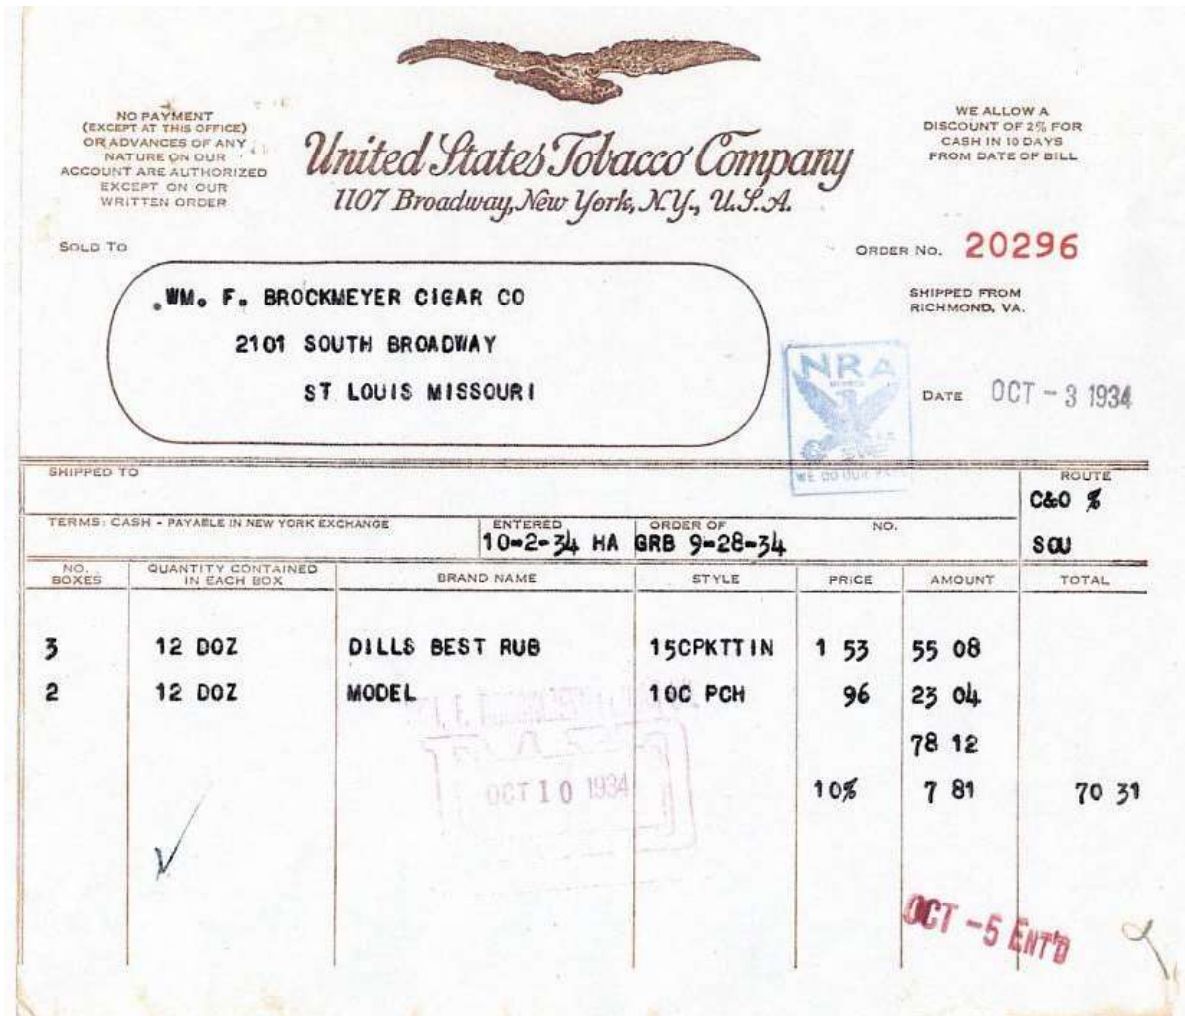 NO PAYMENT
(EXCEPT AT THIS OFFICE)
OR ADVANCES OF ANY
NATURE ON OUR
ACCOUNT ARE AUTHORIZED
EXCEPT ON OUR
WRITTEN ORDER
United States Tobacco Company
1107 Broadway, New York, N.Y., U.S.A.
WE ALLOW A
DISCOUNT OF 2% FOR
CASH IN 10 DAYS
FROM DATE OF BILL
SOLD TO
ORDER NO. 20296
WM. F. BROCKMEYER CIGAR CO
2101 SOUTH BROADWAY
ST LOUIS MISSOURI
SHIPPED FROM
RICHMOND, VA.
NRA
MEMBER
U.S.
WE DO OUR PART
DATE OCT - 3 1934
SHIPPED TO
ROUTE
C&O %
SOU
TERMS: CASH - PAYABLE IN NEW YORK EXCHANGE
ENTERED
10-2-34 HA
ORDER OF
GRB 9-28-34
NO.
NO. BOXES QUANTITY CONTAINED IN EACH BOX BRAND NAME STYLE PRICE AMOUNT TOTAL
3 12 DOZ DILLS BEST RUB 15CPKTTIN 1 53 55 08
2 12 DOZ MODEL 10C PCH 96 23 04
78 12
10% 7 81 70 31
OCT 10 1934
OCT -5 ENT'D